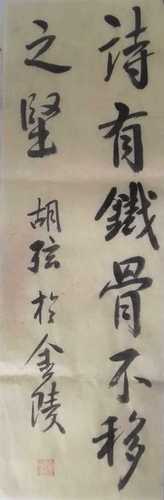 詩有鐵骨不移
之堅
胡弦於金陵